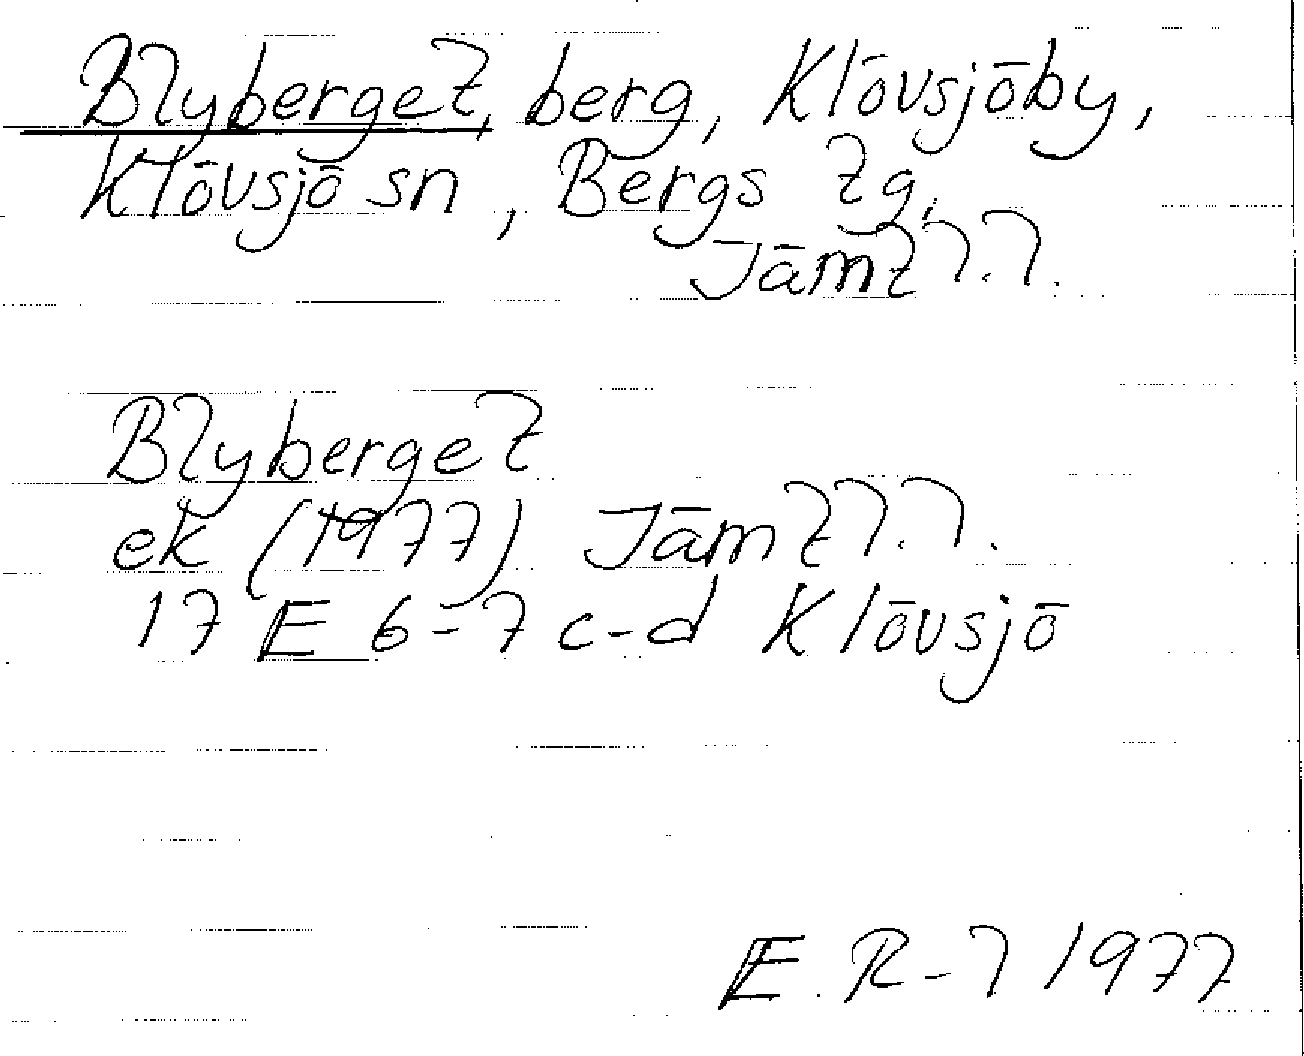 Blyberget, berg, Klövsjöby,
Klövsjö sn, Bergs tg,
Jämtl.l.
Blyberget
ek (1977) Jämtl.l.
17 E 6-7 c-d Klövsjö
E. R-l 1977